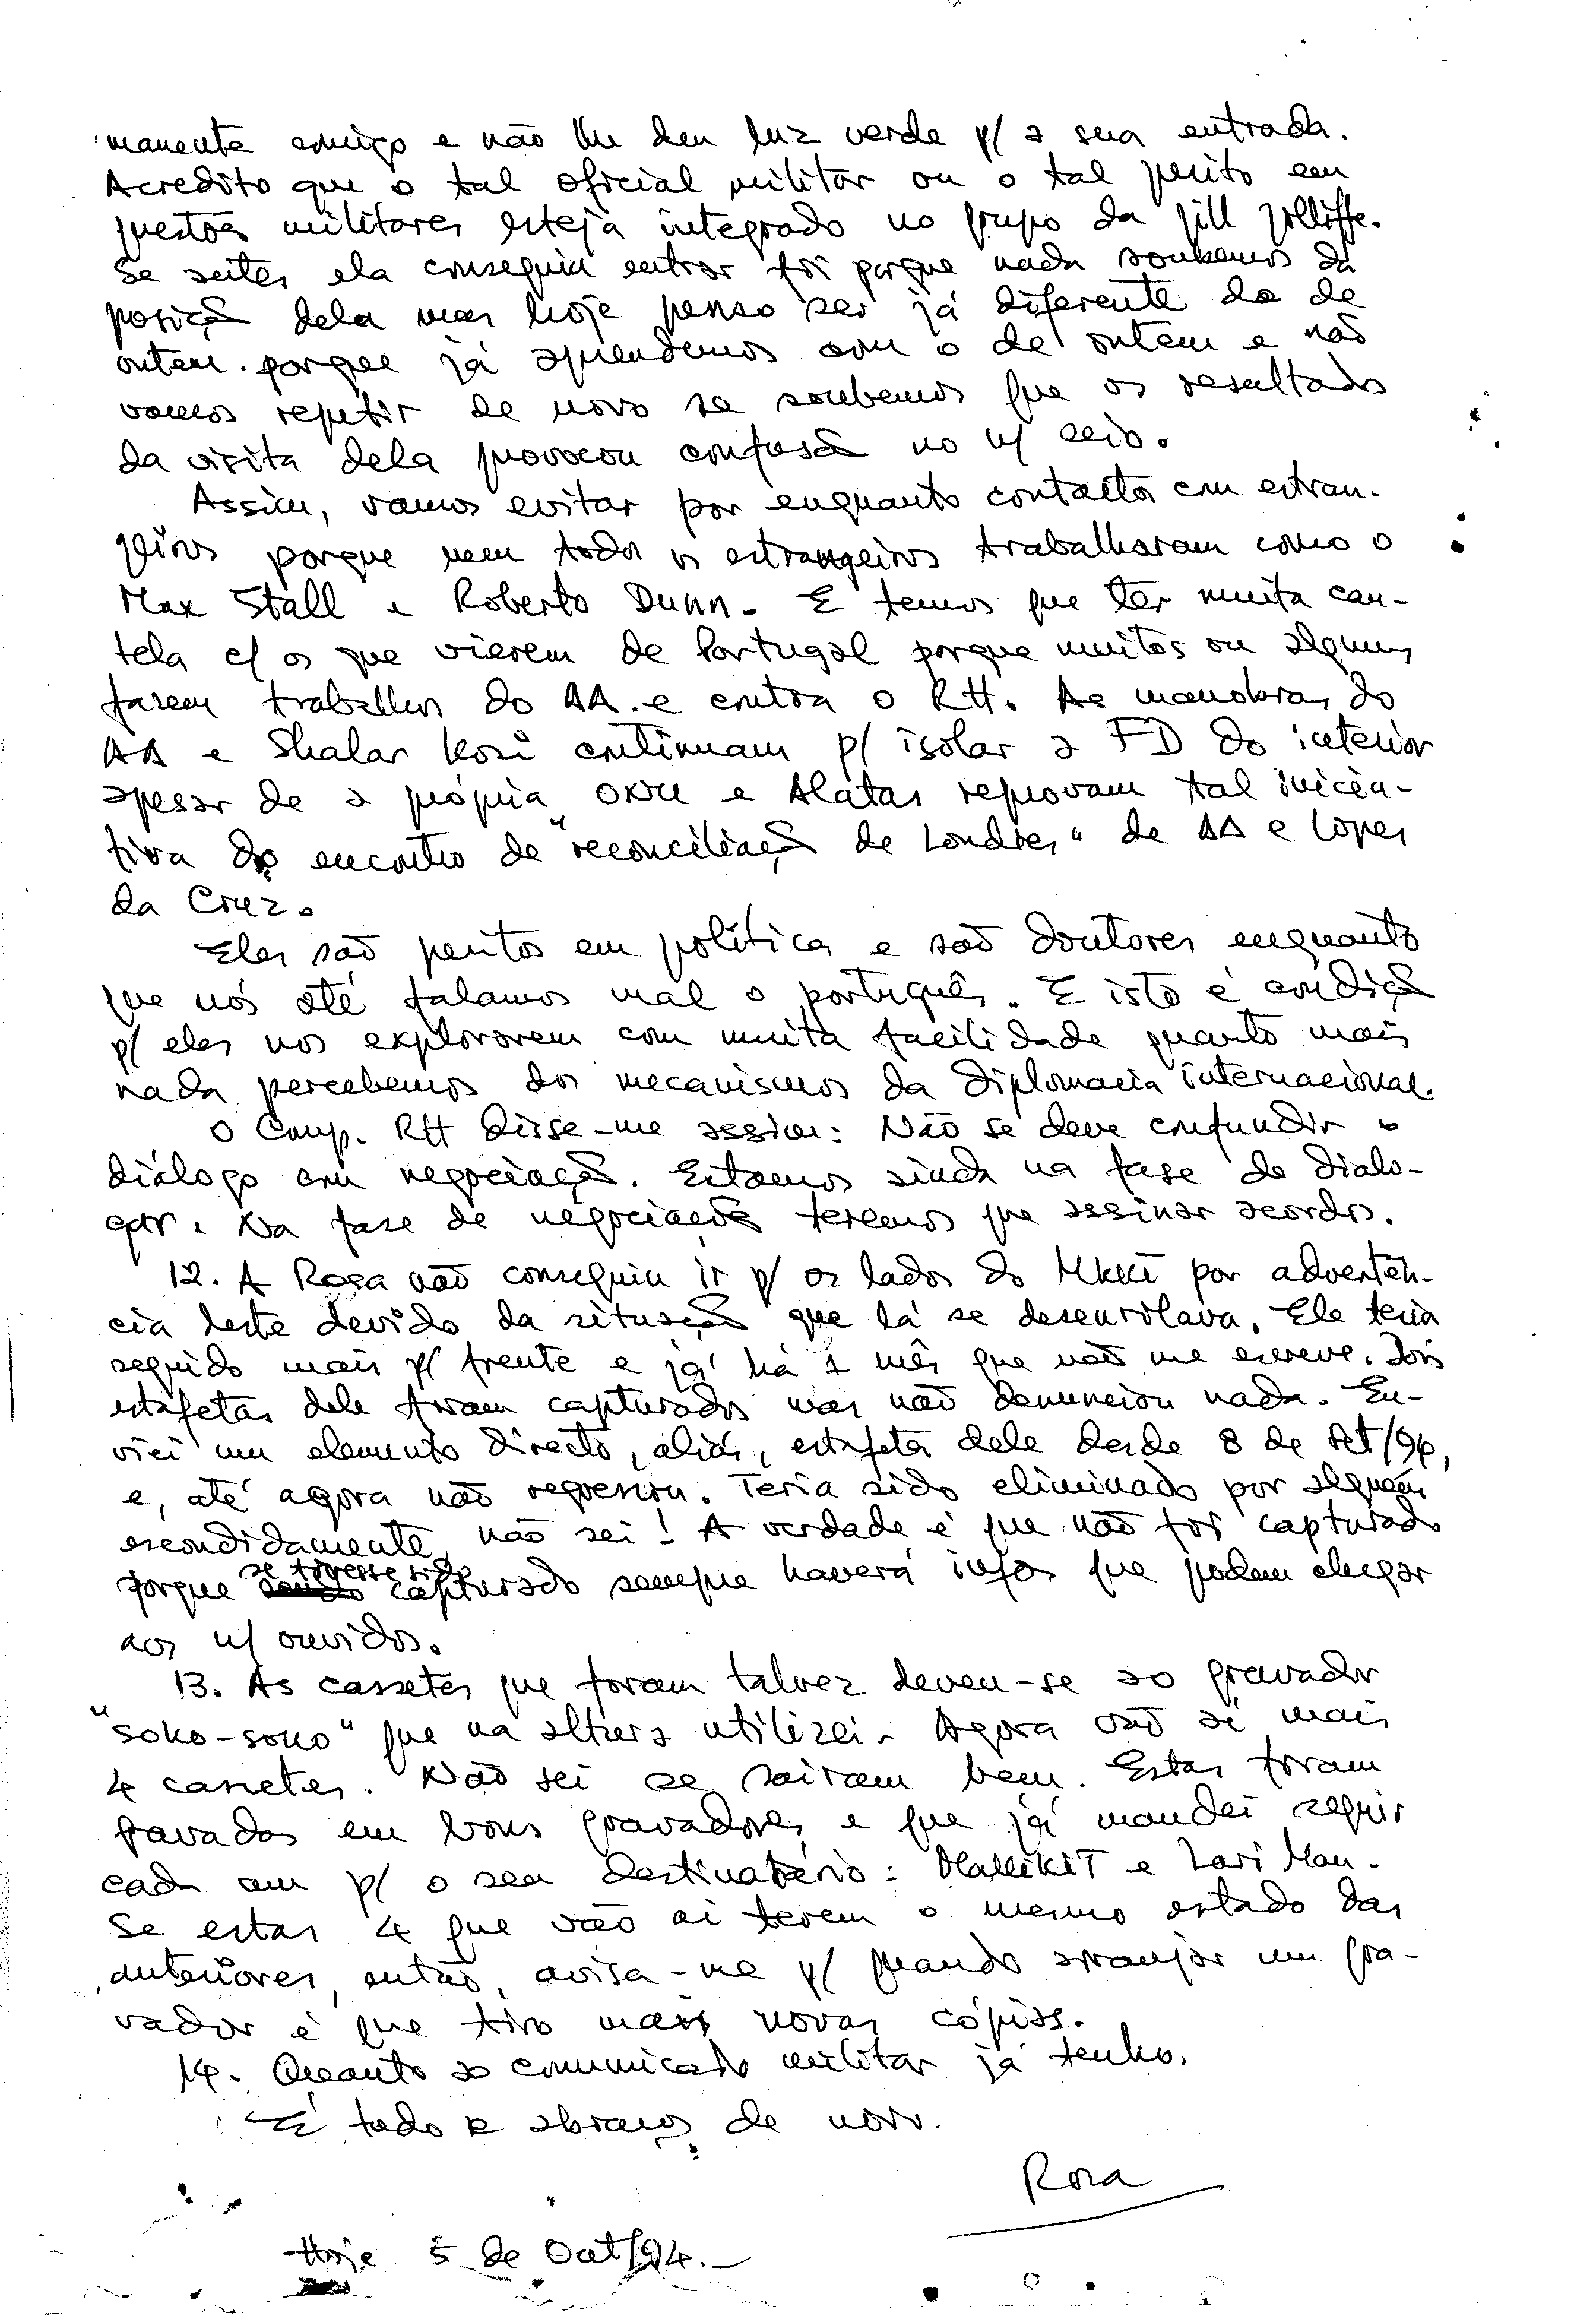 manente amigo e não lhe deu luz verde p/ a sua entrada.
Acredito que o tal oficial militar ou o tal perito em
questões militares esteja integrado no grupo da Jill Jolliffe.
Se antes ela conseguiu entrar foi porque nada soubemos da
posição dela mas hoje penso ser já diferente do de
ontem porque já aprendemos com o de ontem e não
vamos repetir de novo se soubemos que os resultados
da visita dela provocou confusão no n/ seio.
Assim, vamos evitar por enquanto contactos com estran-
geiros porque nem todos os estrangeiros trabalharam como o
Max Stall e Roberto Dunn. E temos que ter muita cau-
tela c/ os que vierem de Portugal porque muitos ou alguns
fazem trabalhos do AA. e contra o RH. As manobras do
AA e Shalar Kosi continuam p/ isolar a FD do interior
apesar de a própria ONU e Alatas reprovam tal inicia-
tiva do encontro de "reconciliação de Londres" de AA e Lopes
da Cruz.
Eles são peritos em política e são doutores enquanto
que nós até falamos mal o português. E isto é condição
p/ eles nos explorarem com muita facilidade quanto mais
nada percebemos dos mecanismos da diplomacia internacional.
O Comp. RH disse-me assim: Não se deve confundir o
diálogo com negociação. Estamos ainda na fase de dialo-
gar. Na fase de negociações teremos que assinar acordos.
12. A Rosa não conseguiu ir p/ os lados do Mkki por advertên-
cia deste devido da situação que lá se desenrolava. Ele teria
seguido mais p/ frente e já há 1 mês que não me escreve. Dois
estafetas dele foram capturados mas não denunciou nada. En-
viei um elemento directo, aliás, estafeta dele desde 8 de Set/94,
e, até agora não regressou. Teria sido eliminado por alguém
escondidamente, não sei! A verdade é que não foi capturado
porque se tivesse sido capturado sempre haverá infos que podem chegar
aos n/ ouvidos.
13. As cassetes que foram talvez deveu-se ao gravador
"soko-soko" que na altura utilizei. Agora vão aí mais
4 cassetes. Não sei se sairam bem. Estas foram
gravadas em bons gravadores e que já mandei seguir
cada um p/ o seu destinatário: MallikiT e Lari Man.
Se estas 4 que vão aí terem o mesmo estado das
anteriores, então, avisa-me p/ quando arranjar um gra-
vador é que tiro mais novas cópias.
14. Quanto ao comunicado militar já tenho.
É tudo e abraços de novo.
Rosa
Hoje 5 de Out/94.-